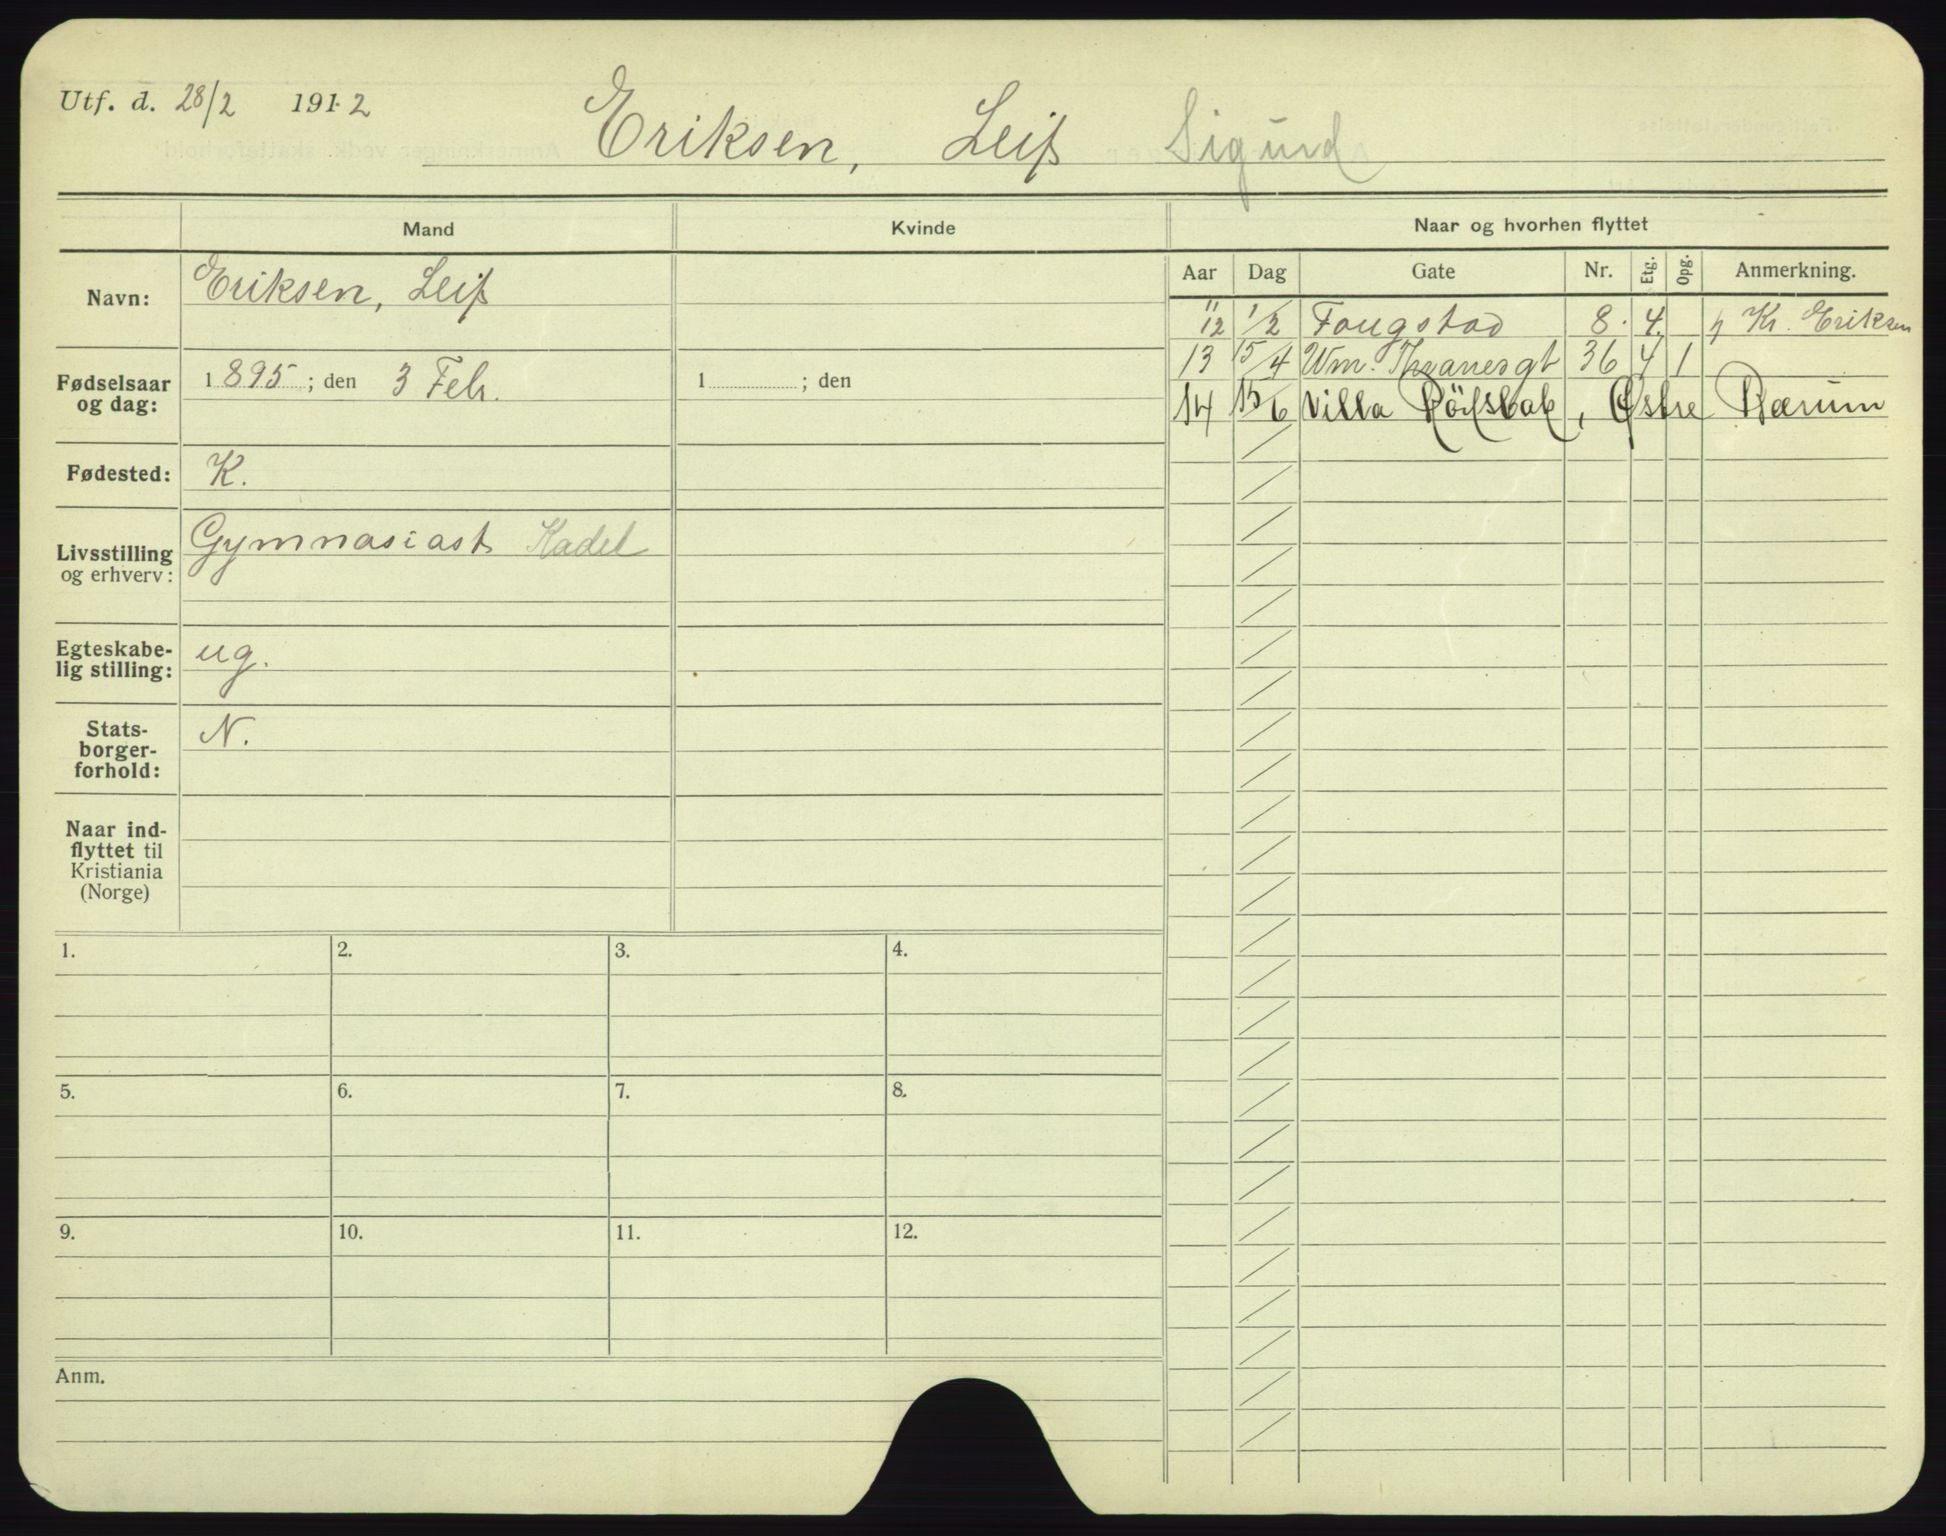 Utf. d. 28/2 1912
Eriksen, Leif Sigurd
Mand
Kvinde
Naar og hvorhen flyttet
Aar Dag Gate Nr. Etg. Opg. Anmerkning.
Navn: Eriksen, Leif
" 12 1/2 Fougstad 8. 4. Kr. Eriksen
13 15/4 Wm. Thranesgt 36 4 1
Fødselsaar og dag: 1895; den 3 Feb. 1 ; den
14 15/6 Villa , Østre Bærum
Fødested: K.
Livsstilling og erhverv: Gymnasiast Kadet
Egteskabe-
lig stilling: ug.
Stats-
borger-
forhold: N.
Naar ind-
flyttet til
Kristiania
(Norge)
1. 2. 3. 4.
5. 6. 7. 8.
9. 10. 11. 12.
Anm.